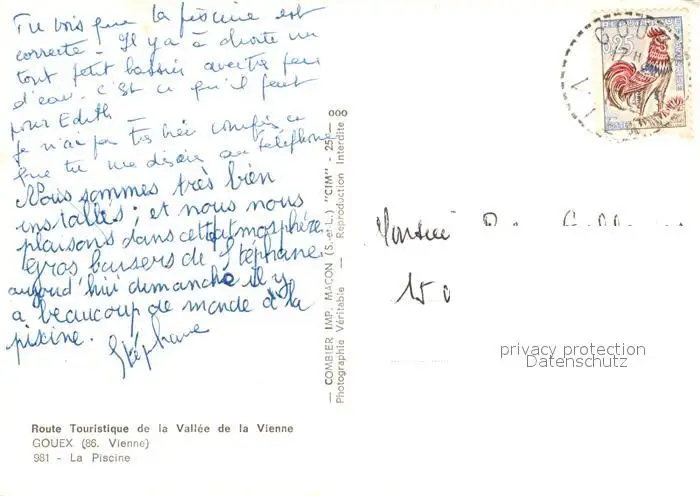 Tu vois que la piscine est
correcte - Il y a à droite un
tout petit bassin avec très peu
d'eau. C'est ce qu'il faut
pour Edith -
Je n'ai pas très bien compris ce
que tu me disais au téléphone
Nous sommes très bien
installés; et nous nous
plaisons dans cette atmosphère.
Gros baisers de Stéphane.
aujourd'hui dimanche il y
a beaucoup de monde à la
piscine.
Stéphane
Route Touristique de la Vallée de la Vienne
GOUEX (86. Vienne)
981 - La Piscine
— COMBIER IMP. MACON (S.-et-L.) "CIM" - 25 —
Photographie Véritable — Reproduction Interdite
000
0,25
GOUEX
Monsieur
150
privacy protection
Datenschutz